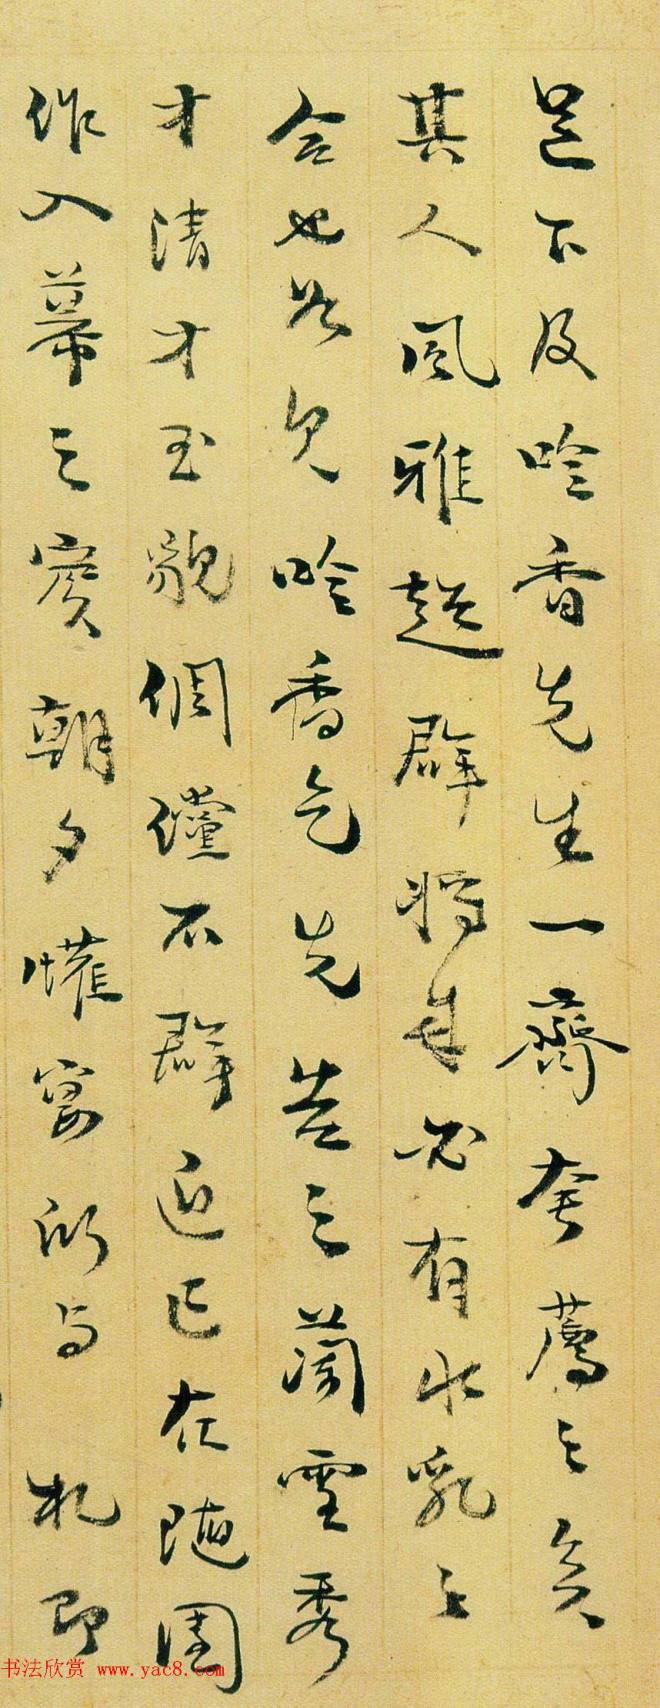 足下及吟香先生一齊奪薦之矣
其人風雅超群將來必有水乳之
合也如見吟香乞先告之蘭雪秀
才清才玉貌倜儻不群近已在隨園
作入幕之賓朝夕懽宴所与札即
书法欣赏 www.yac8.com